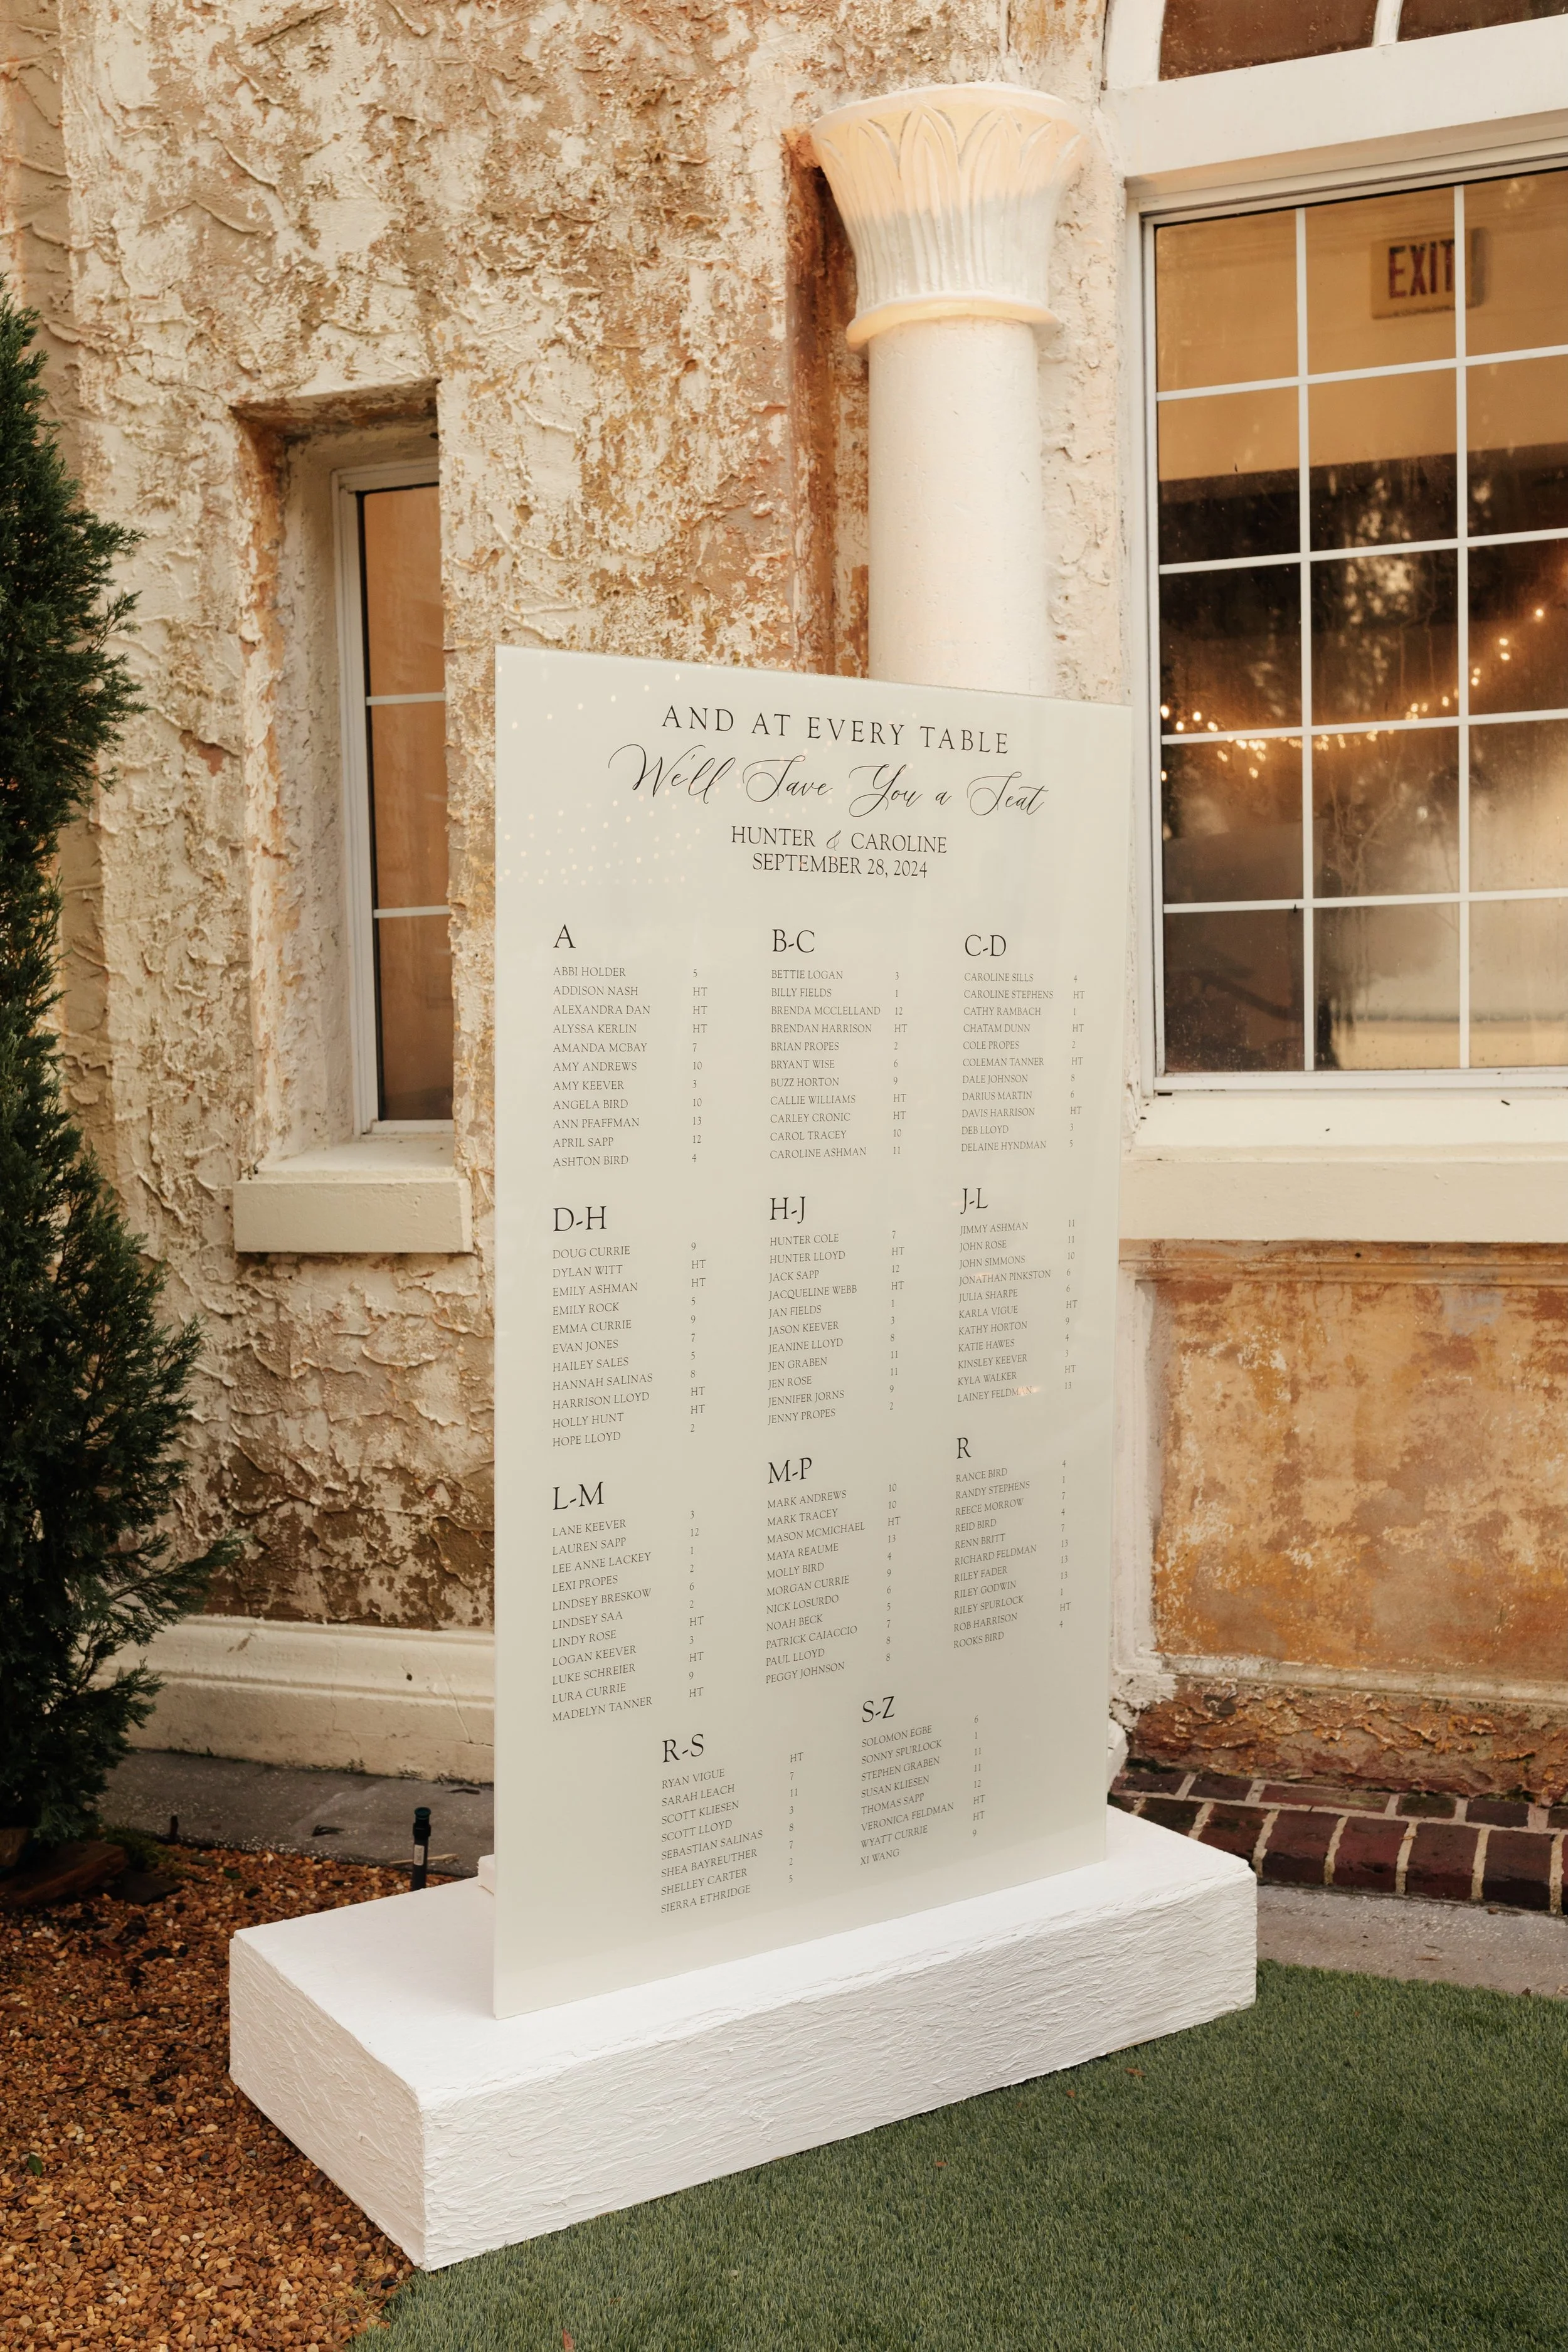 EXIT
AND AT EVERY TABLE
We'll Save You a Seat
HUNTER & CAROLINE
SEPTEMBER 28, 2024
A
ABBI HOLDER 5
ADDISON NASH HT
ALEXANDRA DAN HT
ALYSSA KERLIN HT
AMANDA MCBAY 7
AMY ANDREWS 10
AMY KEEVER 3
ANGELA BIRD 10
ANN PFAFFMAN 13
APRIL SAPP 12
ASHTON BIRD 4
B-C
BETTIE LOGAN 3
BILLY FIELDS 1
BRENDA MCCLELLAND 12
BRENDAN HARRISON HT
BRIAN PROPES 2
BRYANT WISE 6
BUZZ HORTON 9
CALLIE WILLIAMS HT
CARLEY CRONIC HT
CAROL TRACEY 10
CAROLINE ASHMAN 11
C-D
CAROLINE SILLS 4
CAROLINE STEPHENS HT
CATHY RAMBACH 1
CHATAM DUNN HT
COLE PROPES 2
COLEMAN TANNER HT
DALE JOHNSON 8
DARIUS MARTIN 6
DAVIS HARRISON HT
DEB LLOYD 3
DELAINE HYNDMAN 5
D-H
DOUG CURRIE 9
DYLAN WITT HT
EMILY ASHMAN HT
EMILY ROCK 5
EMMA CURRIE 9
EVAN JONES 7
HAILEY SALES 5
HANNAH SALINAS 8
HARRISON LLOYD HT
HOLLY HUNT HT
HOPE LLOYD 2
H-J
HUNTER COLE 7
HUNTER LLOYD HT
JACK SAPP 12
JACQUELINE WEBB HT
JAN FIELDS 1
JASON KEEVER 3
JEANINE LLOYD 8
JEN GRABEN 11
JEN ROSE 11
JENNIFER JORNS 9
JENNY PROPES 2
J-L
JIMMY ASHMAN 11
JOHN ROSE 11
JOHN SIMMONS 10
JONATHAN PINKSTON 6
JULIA SHARPE 6
KARLA VIGUE HT
KATHY HORTON 9
KATIE HAWES 4
KINSLEY KEEVER 3
KYLA WALKER HT
LAINEY FELDMAN 13
L-M
LANE KEEVER 3
LAUREN SAPP 12
LEE ANNE LACKEY 1
LEXI PROPES 2
LINDSEY BRESKOW 6
LINDSEY SAA 2
LINDY ROSE HT
LOGAN KEEVER 3
LUKE SCHREIER HT
LURA CURRIE 9
MADELYN TANNER HT
M-P
MARK ANDREWS 10
MARK TRACEY 10
MASON MCMICHAEL HT
MAYA REAUME 13
MOLLY BIRD 4
MORGAN CURRIE 9
NICK LOSURDO 6
NOAH BECK 5
PATRICK CAIACCIO 7
PAUL LLOYD 8
PEGGY JOHNSON 8
R
RANCE BIRD 4
RANDY STEPHENS 1
REECE MORROW 7
REID BIRD 4
RENN BRITT 7
RICHARD FELDMAN 13
RILEY FADER 13
RILEY GODWIN 13
RILEY SPURLOCK 1
ROB HARRISON HT
ROOKS BIRD 4
R-S
RYAN VIGUE HT
SARAH LEACH 7
SCOTT KLIESEN 11
SCOTT LLOYD 3
SEBASTIAN SALINAS 8
SHEA BAYREUTHER 7
SHELLEY CARTER 2
SIERRA ETHRIDGE 5
S-Z
SOLOMON EGBE 6
SONNY SPURLOCK 1
STEPHEN GRABEN 11
SUSAN KLIESEN 11
THOMAS SAPP 12
VERONICA FELDMAN HT
WYATT CURRIE HT
XI WANG 9